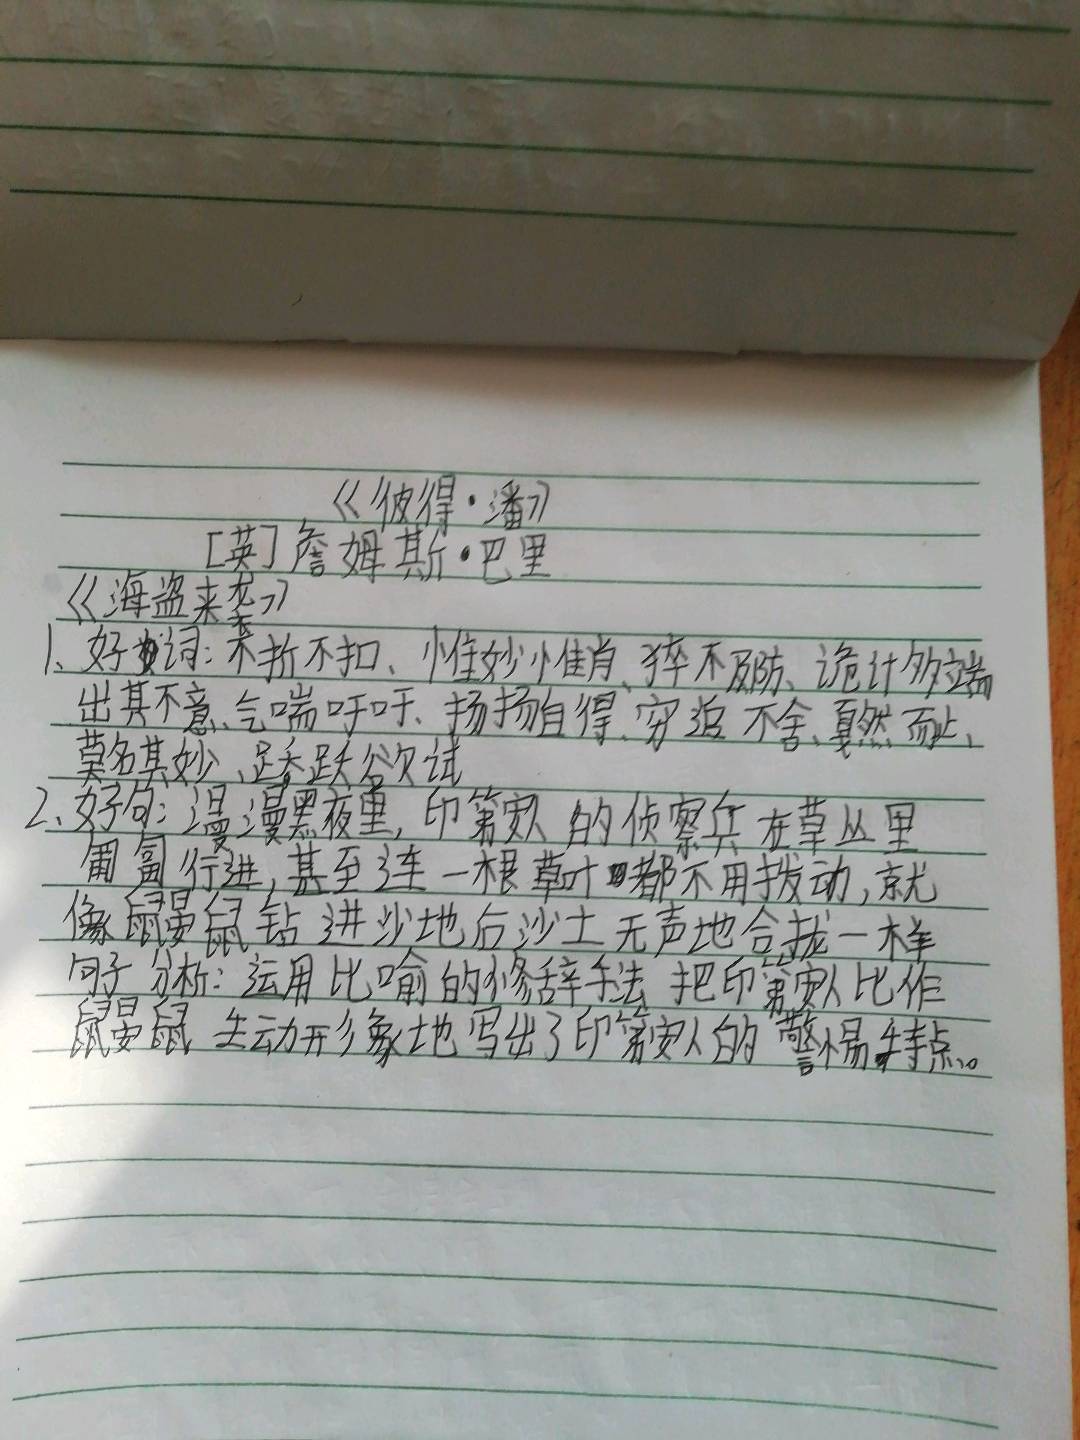 《彼得·潘》
[英]詹姆斯·巴里
《海盗来袭》
1、好词：不折不扣、惟妙惟肖、猝不及防、诡计多端
出其不意、气喘吁吁、扬扬自得、穷追不舍、戛然而止、
莫名其妙、跃跃欲试
2、好句：漫漫黑夜里，印第安人的侦察兵在草丛里
匍匐行进，甚至连一根草叶都不用拨动，就
像鼹鼠钻进沙地后沙土无声地合拢一样
句子分析：运用比喻的修辞手法 把印第安人比作
鼹鼠 生动形象地写出了印第安人的警惕特点。